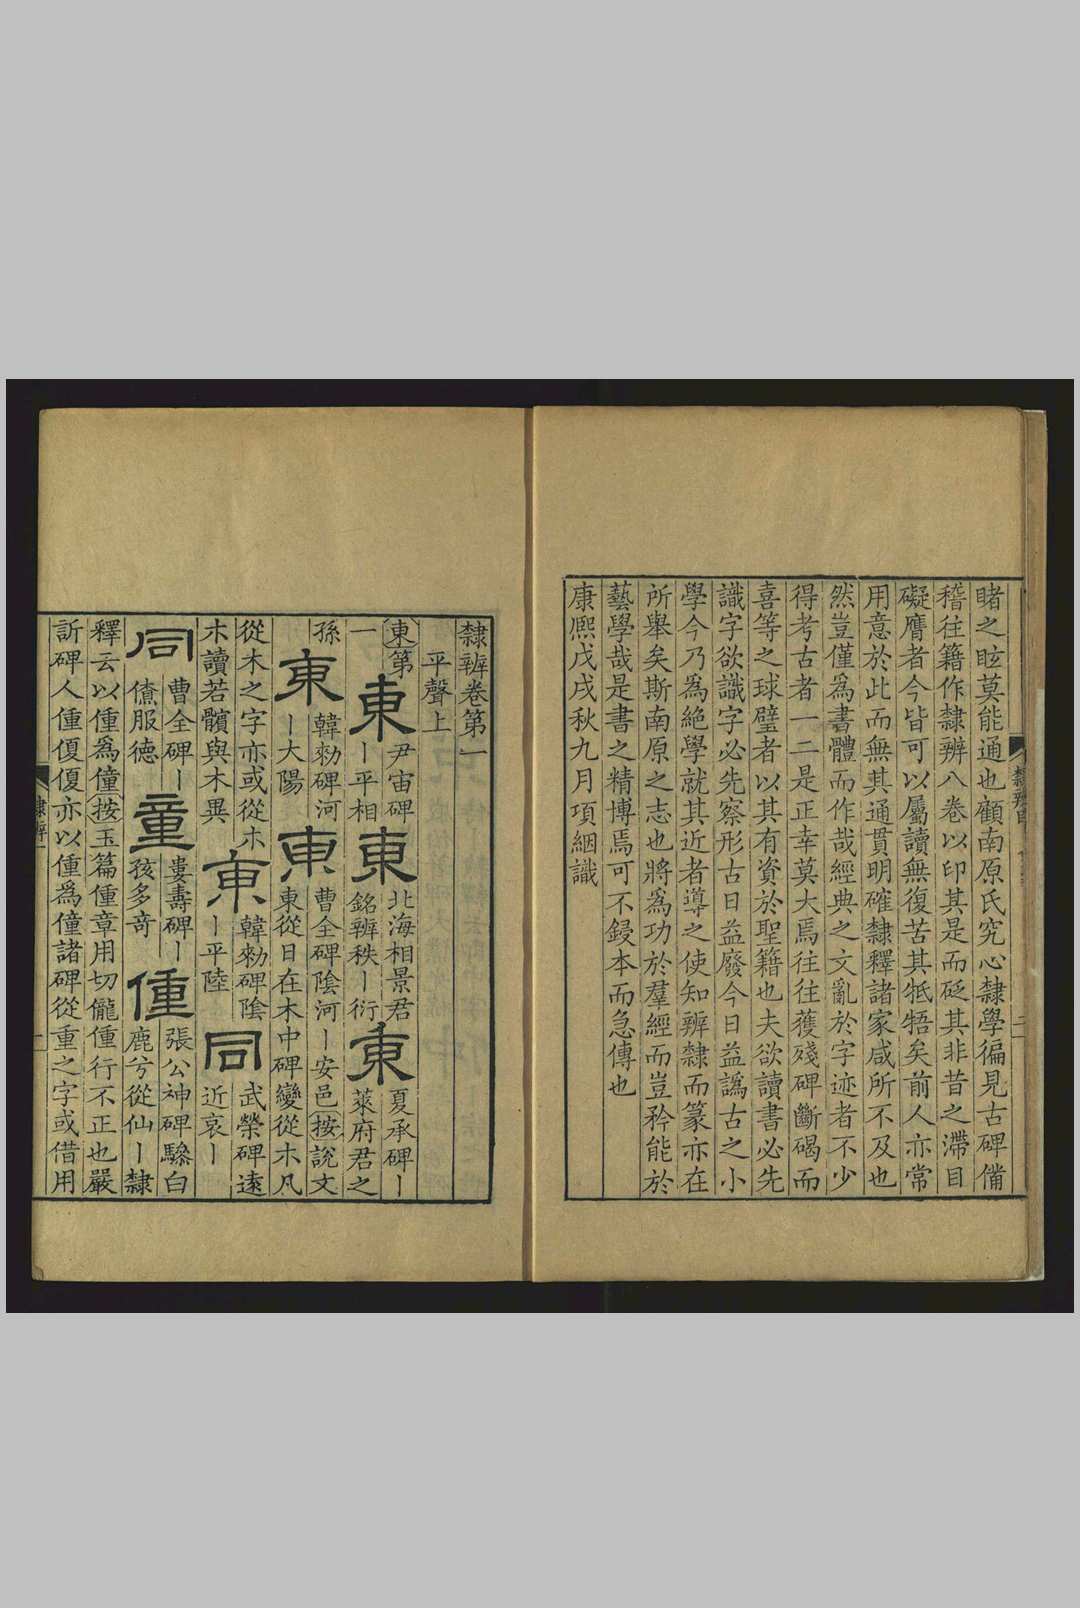 睹之眩莫能通也顧南原氏究心隸學徧見古碑備
稽往籍作隸辨八卷以印其是而砭其非昔之滯目
礙膺者今皆可以屬讀無復苦其牴牾矣前人亦常
用意於此而無其通貫明確隸釋諸家咸所不及也
然豈僅爲書體而作哉經典之文亂於字迹者不少
得考古者一二是正幸莫大焉往往獲殘碑斷碣而
喜等之球璧者以其有資於聖籍也夫欲讀書必先
識字欲識字必先察形古日益廢今日益譌古之小
學今乃爲絕學就其近者導之使知辨隸而篆亦在
所舉矣斯南原之志也將爲功於羣經而豈矜能於
藝學哉是書之精博焉可不鋟本而急傳也
康熙戊戌秋九月項絪識
隸辨卷第一
平聲上
東第一
東 尹宙碑丨平相
東 北海相景君銘辨秩丨衍
東 夏承碑丨萊府君之孫
東 韓勑碑河丨大陽
東 曹全碑陰河丨安邑 按說文東從日在木中碑變從木凡
從木之字亦或從木木讀若髕與木異
東 韓勑碑陰丨平陸
同 武榮碑遠近哀丨
同 曹全碑丨僚服德
童 婁壽碑丨孩多奇
僮 張公神碑驂白鹿兮從仙丨隸
釋云以僮爲僮按玉篇僮章用切儱僮行不正也嚴
訢碑人僮㑮㑮亦以僮爲僮諸碑從重之字或借用
隸辨
一
二